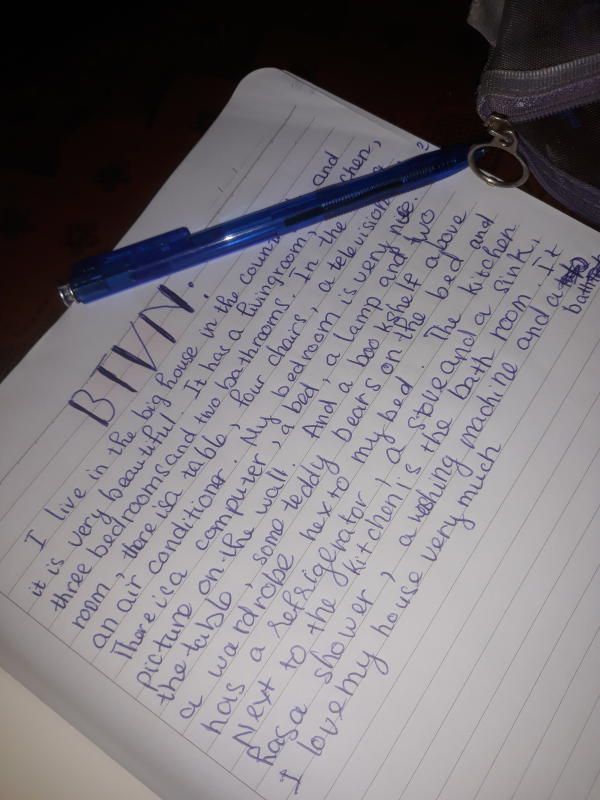 BTVN.
I live in the big house in the and
it is very beautiful. It has a livingroom, chen,
three bedrooms and two bathrooms. In the
room, there is a table, four chairs, a television
an air conditioner. My bedroom is very nice.
There is a computer, a bed, a lamp and two
picture on the wall. And a bookshelf above
the table, some teddy bears on the bed and
a wardrobe next to my bed. The kitchen
has a refrigerator, a stove and a sink.
Next to the kitchen is the bath room. It
has a shower, a washing machine and a
I love my house very much